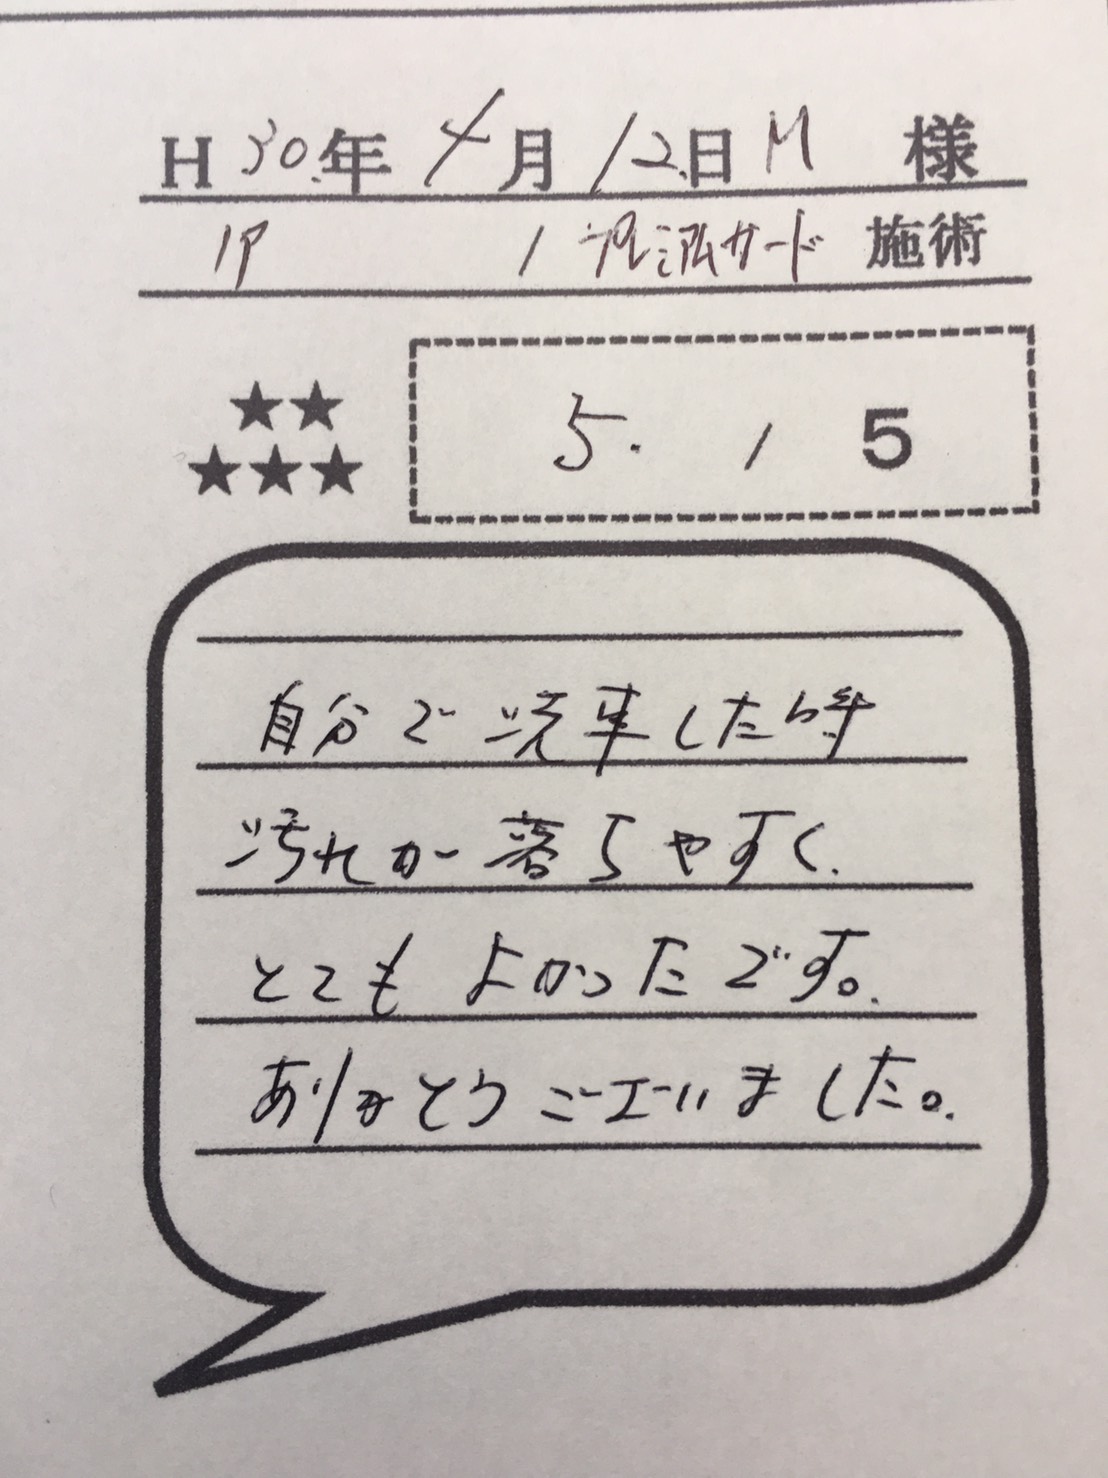 H 30.年 4月 12.日 M 様
/ プレミアムガード 施術
★★
★★★
5. / 5
自分で洗車した時
汚れが落ちやすく.
とてもよかったです。.
ありがとうございました。.